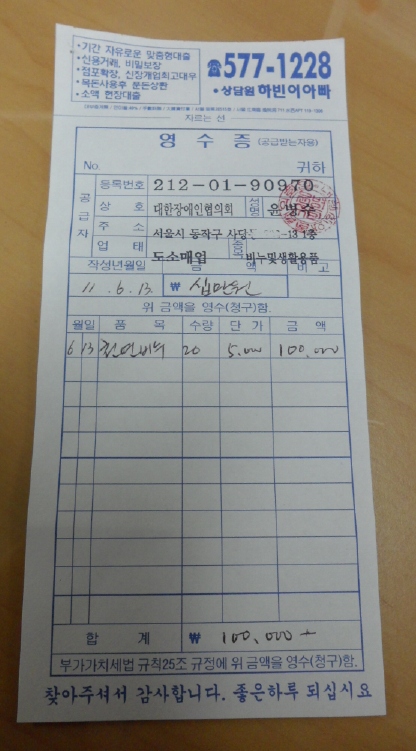 ·기간 자유로운 맞춤형대출
·신용거래, 비밀보장
·점포확장, 신장개입최고대우
·목돈사용후 푼돈상환
·소액 현장대출
☎577-1228
·상담원 하빈이아빠
자르는 선
영 수 증 (공급받는자용)
No. 귀하
공급자
등록번호 212-01-90970
상 호 대한장애인협의회 성명
주 소 서울시 동작구 사당 -13 1층
업 태 도소매업 종목 비누및생활용품
작성년월일 금 액 비 고
11. 6. 13 ₩ 십만원
위 금액을 영수(청구)함.
월일 품 목 수량 단 가 금 액
6 13 천연비누 20 5,000 100,000
합 계 ₩ 100,000
부가가치세법 규칙25조 규정에 위 금액을 영수(청구)함.
찾아주셔서 감사합니다. 좋은하루 되십시요